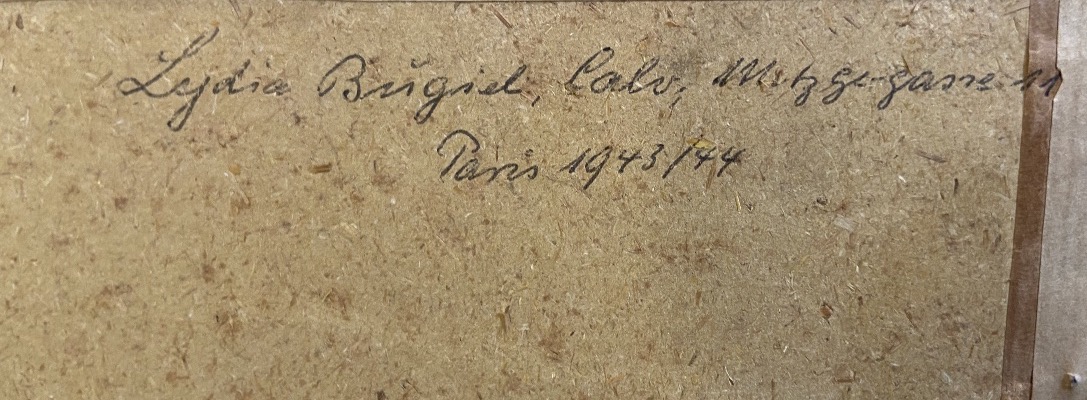 Lydia Bŭgiel, Calw, Metzgergasse 11
Paris 1943/44